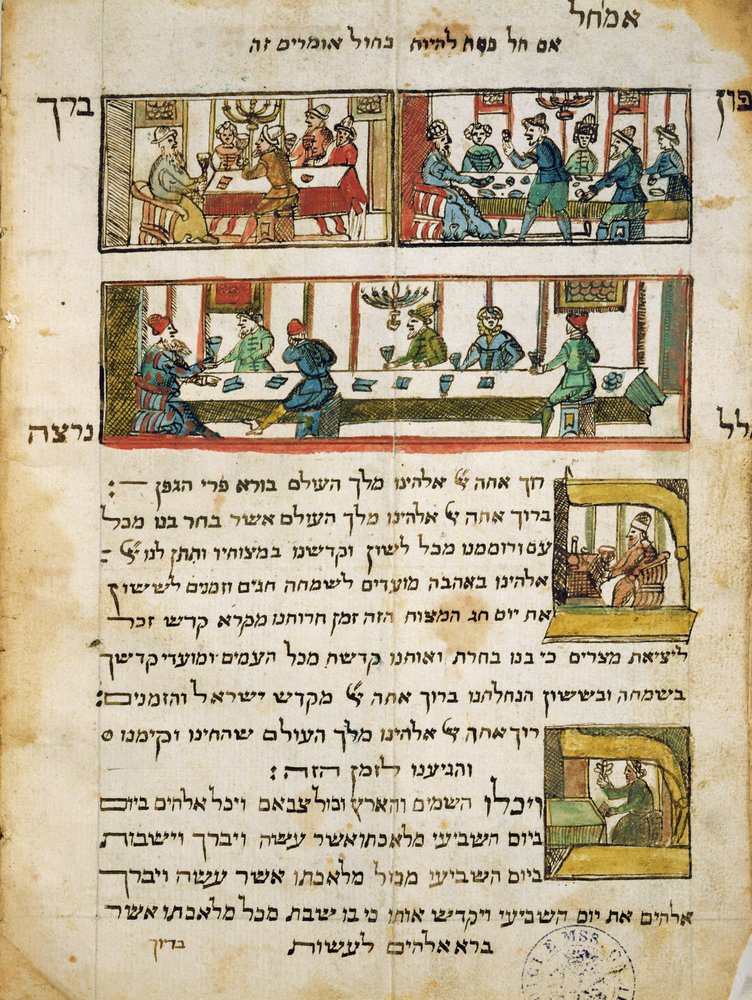 אמחל
אם חל פסח להיות בחול אומרים זה
ברך
נרצה
רוך אתה אלהינו מלך העולם בורא פרי הגפן
ברוך אתה אלהינו מלך העולם אשר בחר בנו מכל
עם ורוממנו מכל לשון וקדשנו במצותיו ותתן לנו
אלהינו באהבה מועדים לשמחה חגים וזמנים לששון
את יום חג המצות הזה זמן חרותנו מקרא קדש זכר
ליציאת מצרים כי בנו בחרת ואותנו קדשת מכל העמים ומועדי קדשך
בשמחה ובששון הנחלתנו ברוך אתה מקדש ישראל והזמנים
רוך אתה אלהינו מלך העולם שהחינו וקימנו
והגיענו לזמן הזה:
ויכלו השמים והארץ וכול צבאם ויכל אלהים ביום
ביום השביעי מלאכתו אשר עשה ויברך וישבות
ביום השביעי מכול מלאכתו אשר עשה ויברך
אלהים את יום השביעי ויקדש אותו כי בו שבת מכל מלאכתו אשר
ברא אלהים לעשות
ברוך
MSS